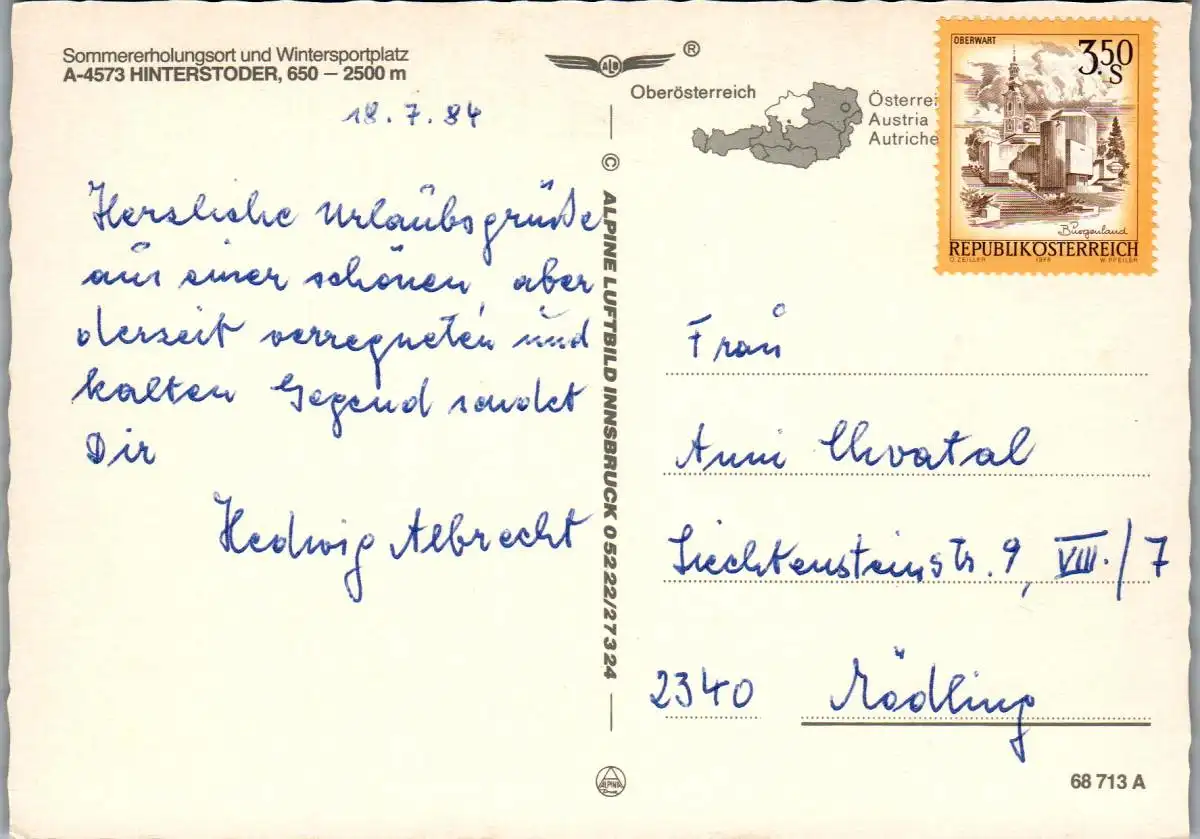 Sommererholungsort und Wintersportplatz
A-4573 HINTERSTODER, 650 – 2500 m
18.7.84
Herzliche Urlaubsgrüße
aus einer schönen, aber
derzeit verregneten und
kalten Gegend sendet
Dir
Hedwig Albrecht
ALB ®
Oberösterreich
Österrei
Austria
Autriche
© ALPINE LUFTBILD INNSBRUCK 05222/27324
ALPINE
OBERWART
3.50
S
Burgenland
REPUBLIK ÖSTERREICH
O. ZEILER 1978 W. PFEILER
Frau
Anni Chvatal
Liechtensteinstr. 9, VIII./7
2340 Mödling
68 713 A